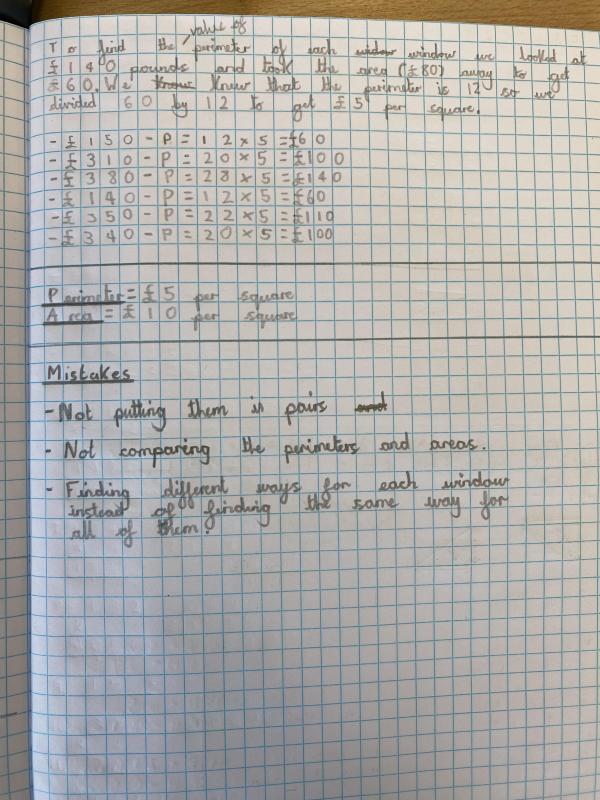 value of
To find the perimeter of each window window we looked at
£140 pounds and took the area (£80) away to get
£60. We know knew that the perimeter is 12 so we
divided 60 by 12 to get £5 per square.
- £150 - P = 12 × 5 = £60
- £310 - P = 20 × 5 = £100
- £380 - P = 28 × 5 = £140
- £140 - P = 12 × 5 = £60
- £350 - P = 22 × 5 = £110
- £340 - P = 20 × 5 = £100
Perimeter = £5 per square
Area = £10 per square
Mistakes
- Not putting them in pairs and
- Not comparing the perimeters and areas.
- Finding different ways for each window
instead of finding the same way for
all of them.